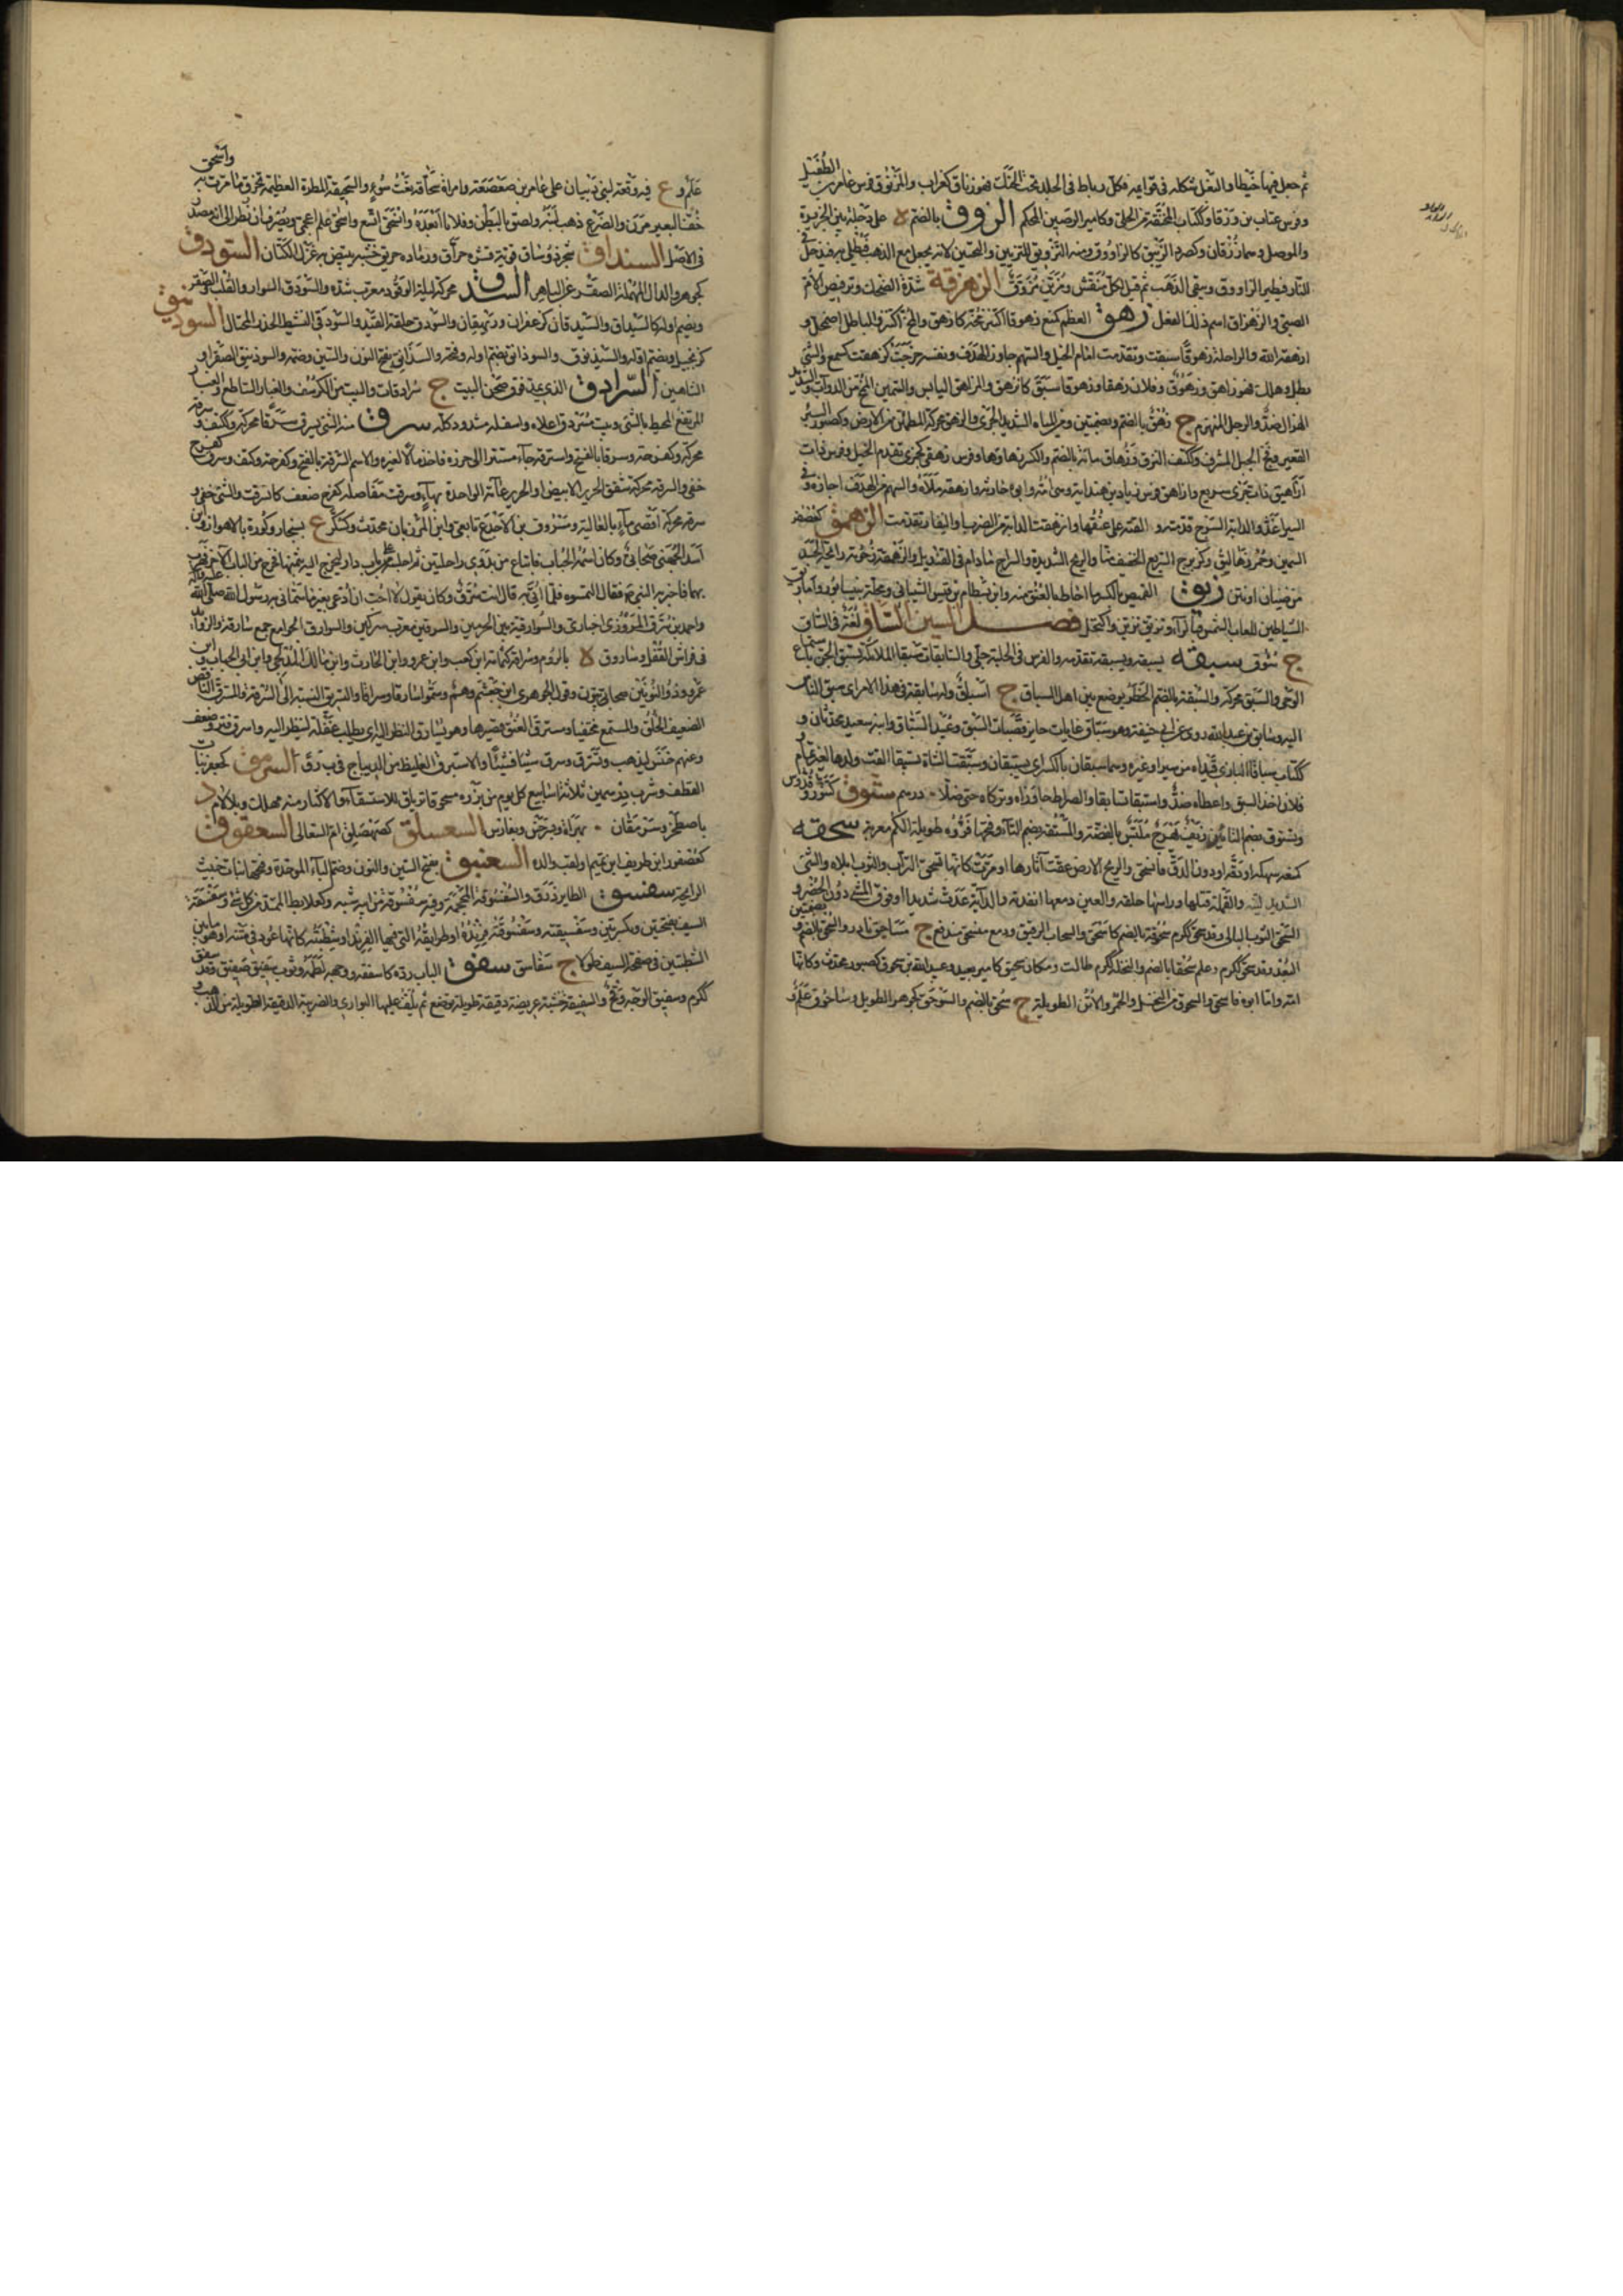 ثم جعل فيها خيطا والبغل شكله فى قوائمه فكل رباط فى الجلد تحت الحنك فهو زناق ككتاب والمزنوق فرس عامر بن الطفيل
وفرس عتاب بن ورقاء وككتاب المخنقة من الحلى وكامير الرصين المحكم الزوق بالضم ة على دجلة بين الجزيرة
والموصل وهما زوقان وكصرد الزئبق كالزاووق ومنه التزويق للتزيين والتحسين لانه يجعل مع الذهب فيطلى به فيدخل فى
النار فيطير الزاووق ويبقى الذهب ثم قيل لكل منقش ومزين مزوق الزهزقة شدة الضحك وترقيص الأم
الصبى والزهزاق اسم ذلك الفعل زهق العظم كمنع زهوقا اكتنز مخه كازهق والمخ اكتنز والباطل اضمحل و
ازهقه الله والراحلة زهوقا سبقت وتقدمت امام الخيل والسهم جاوز الهدف ونفسه خرجت كزهقت كسمع والشئ
بطل وهلك فهو زاهق وزهوق وفلان زهقا وزهوقا سبق كانزهق والزاهق اليابس والسمين المخ من الدواب والشديد
الهزال ضد والرجل المنهزم ج زهق بالضم وبضمتين ومن المياه الشديد الجرى والزهق محركة المطمئن من الارض وكصبور البئر
القعير وفج الجبل المشرف وككتف النزق وزهاق مائة بالضم والكسر زهاؤها وفرس زهقى كجمزى تقدم الخيل وفرس ذات
ازاهيق ذات جرى سريع وازاهق فرس زياد بن هنداية وهى امه وابوه حارثة وازهقه ملأه والسهم من الهدف اجازه وفى
السير اغذ والدابة السرج قدمته والقته على عنقها وانزهقت الدابة من الضرب او النفار تقدمت الزهمق كجعفر
السبط
من ضبان او نتن زيق القميص بالكسر ما احاط بالعنق منه وابن بسطام بن قيس الشيبانى ومحلة بنيسابور
الشياطين لعاب الشمس فى تزيق تزين واكتحل فصل السين الساق لغة فى الساق
ج سؤق سبقه يسبقه ويسبقه تقدمه والفرس فى الحلبة جلى والسابقات سبقا الملائكة تسبق الجن باستماع
الوحى والسبق محركة والسبقة بالضم الخطر يوضع بين اهل السباق ج اسباق وله سابقة فى هذا الامر اى سبق الناس
اليه وسابق بن عبد الله روى عن ابى حنيفة وهو سباق غايات حائز قصبات السبق وعبيد السباق وابنه سعيد محدثان و
ككتاب سباقا البازى قيداه من سير او غيره وهما سبقان بالكسر اى يستبقان وسبقت الشاة تسبيقا القت ولدها لغير تمام و
فلان اخذ السبق واعطاه ضد واستبقا تسابقا والصراط جاوزاه وتركاه حتى ضلا درهم ستوق كتنور وقدوس
وتستوق بضم التاءين زيف بهرج ملبس بالفضة والمستقة بضم التاء وفتحها فروة طويلة الكم معربة سحقه
كمنعه سهكه او دقه او دون الدق فانسحق والريح الارض عفت آثارها او مرت كانها تسحق التراب والثوب ابلاه والشئ
الشديد لينه والقملة قتلها ورأسها حلقه والعين دمعها انفدته والدابة عدت شديدا او فوق المشى دون الحضر و
السحق الثوب البالى وقد سحق ككرم سحوقة بالضم كاسحق والسحاب الرقيق ودمع منسحق مندفع ج مساحيق نادر والسحق بالضم وبضمتين
البعد وقد سحق ككرم وعلم سحقا بالضم والنخلة ككرم طالت ومكان سحيق كامير بعيد وعبد الله بن سحوق كصبور محدث وكانها
امه واما ابوه فاسحق والسحوق من النخل والحمر والاتن الطويلة ج سحق بالضم والسوحق كجوهر الطويل وساحوق علم و
علم و ع فيه وقعة لبنى ذبيان على عامر بن صعصعة وامراة سحاقة نعت سوء والسحيقة المطرة العظيمة تجرف ما مرت به واسحق
خف البعير مرن والضرع ذهب لبنه ولصق بالبطن وفلانا ابعده وانسحق اتسع واسحق علم اعجمى ويصرف ان نظر الى انه مصدر
فى الاصل السنداق شجر ذو ساق قوية قشره حراق ورماده حريق خشبه يبيض به غزل الكتان السودق
كجوهر والدال المهملة الصقر عن الباهر السذق محركة ليلة الوقود معرب سذه والسوذق السوار والقلب والصقر
ويضم اوله كالسيذاق والسيذقان كزعفران وريهقان والسوذق حلقة القيد والسوذقى النشيط الحذر المحتال السوذنيق
كزنجبيل ويضم اوله والسيذنوق والسوذانق بضم اوله وفتحه والسذانق بفتح النون والسين وضمه والسوذينق الصقر او
الشاهين السرادق الذى يمد فوق صحن البيت ج سرادقات والبيت من الكرسف والغبار الساطع والغبار
المرتفع المحيط بالشئ وبيت مسردق اعلاه واسفله مشدود كله سرق منه الشئ يسرق سرقا محركة وككتف وسرقة
محركة وكفرحة وسرقا بالفتح واسترقه جاء مستترا الى حرز فاخذ مالا لغيره والاسم السرقة بالفتح وكفرحة وكتف وسرق كفرح
خفى والسرقة محركة شقق الحرير الابيض او الحرير عامة الواحدة بهاء وسرقت مفاصله كفرح ضعفت كانسرقت والشئ خفى و
سرقة محركة اقصى ماء بالعالية ومسروق بن الاجدع تابعى وابن المرزبان محدث وكسكر ع بسنجار وكورة بالاهواز وابن
اسد الجهنى صحابى وكان اسمه الحباب فابتاع من بدوى راحلتين ثم اجلسه على باب دار ليخرج اليه بثمنها فخرج من الباب الآخر فهرب
بهما فاخبر به النبى فقال التمسوه فلما اتى به قال انت سرق وكان يقول لا احب ان ادعى بغير ما سمانى به رسول الله صلى الله عليه وآله
واحمد بن سرق المروزى اخبارى والسوارقية بين الحرمين والسرقين معرب سركين والسوارق الجوامع جمع سارقة والزوائد
فى فراش القفل وساروق ة بالروم وسراقة كثمامة ابن كعب وابن عمرو وابن الحارث وابن مالك المدلجى وابن ابى الحباب وابن
عمرو وذو النون صحابيون وقول الجوهرى ابن جعشم وهم وسموا سارقا وسراقا والتسريق النسبة الى السرقة والمسترق الناقص
الضعيف الخلق والمستمع مختفيا ومسترق العنق قصيرها وهو يسارق النظر اليه اى يطلب غفلة لينظر اليه وانسرق فتر وضعف
وعنهم خنس ليذهب وتسرق وسرق شيئا فشيئا والاستبرق الغليظ من الديباج فى برق السرمق كجعفر نبات
القطف وشرب درهمين ثلاثة اسابيع كل يوم من بزره مسحوقا ترياق للاستسقاء والاكثار منه مهلك وبلا لام د
باصطخر وسرمقان بهراة وبسرخس وبفارس السعسلق كصهصلق ام السعالى السعفوق
كعصفور ابن طريف ابن تميم ولقب والده السعنبق بفتح السين والنون وضم الباء الموحدة وفتحها نبات خبيث
الرائحة سفسق الطائر ذرق والسفسوقة المحجة وفيه سفسوقة من ابيه شبه
الشطبتين فى صفحة السيف طولا ج سفاسق سفق الباب رده كاسفقه ووجهه لطمه وثوب سفيق صفيق وقد سفق
ككرم وسفيق الوجه وقح والسفيقة خشبة عريضة دقيقة طويلة توضع ثم يلف عليها البوارى والضريبة الدقيقة الطويلة من الذهب و